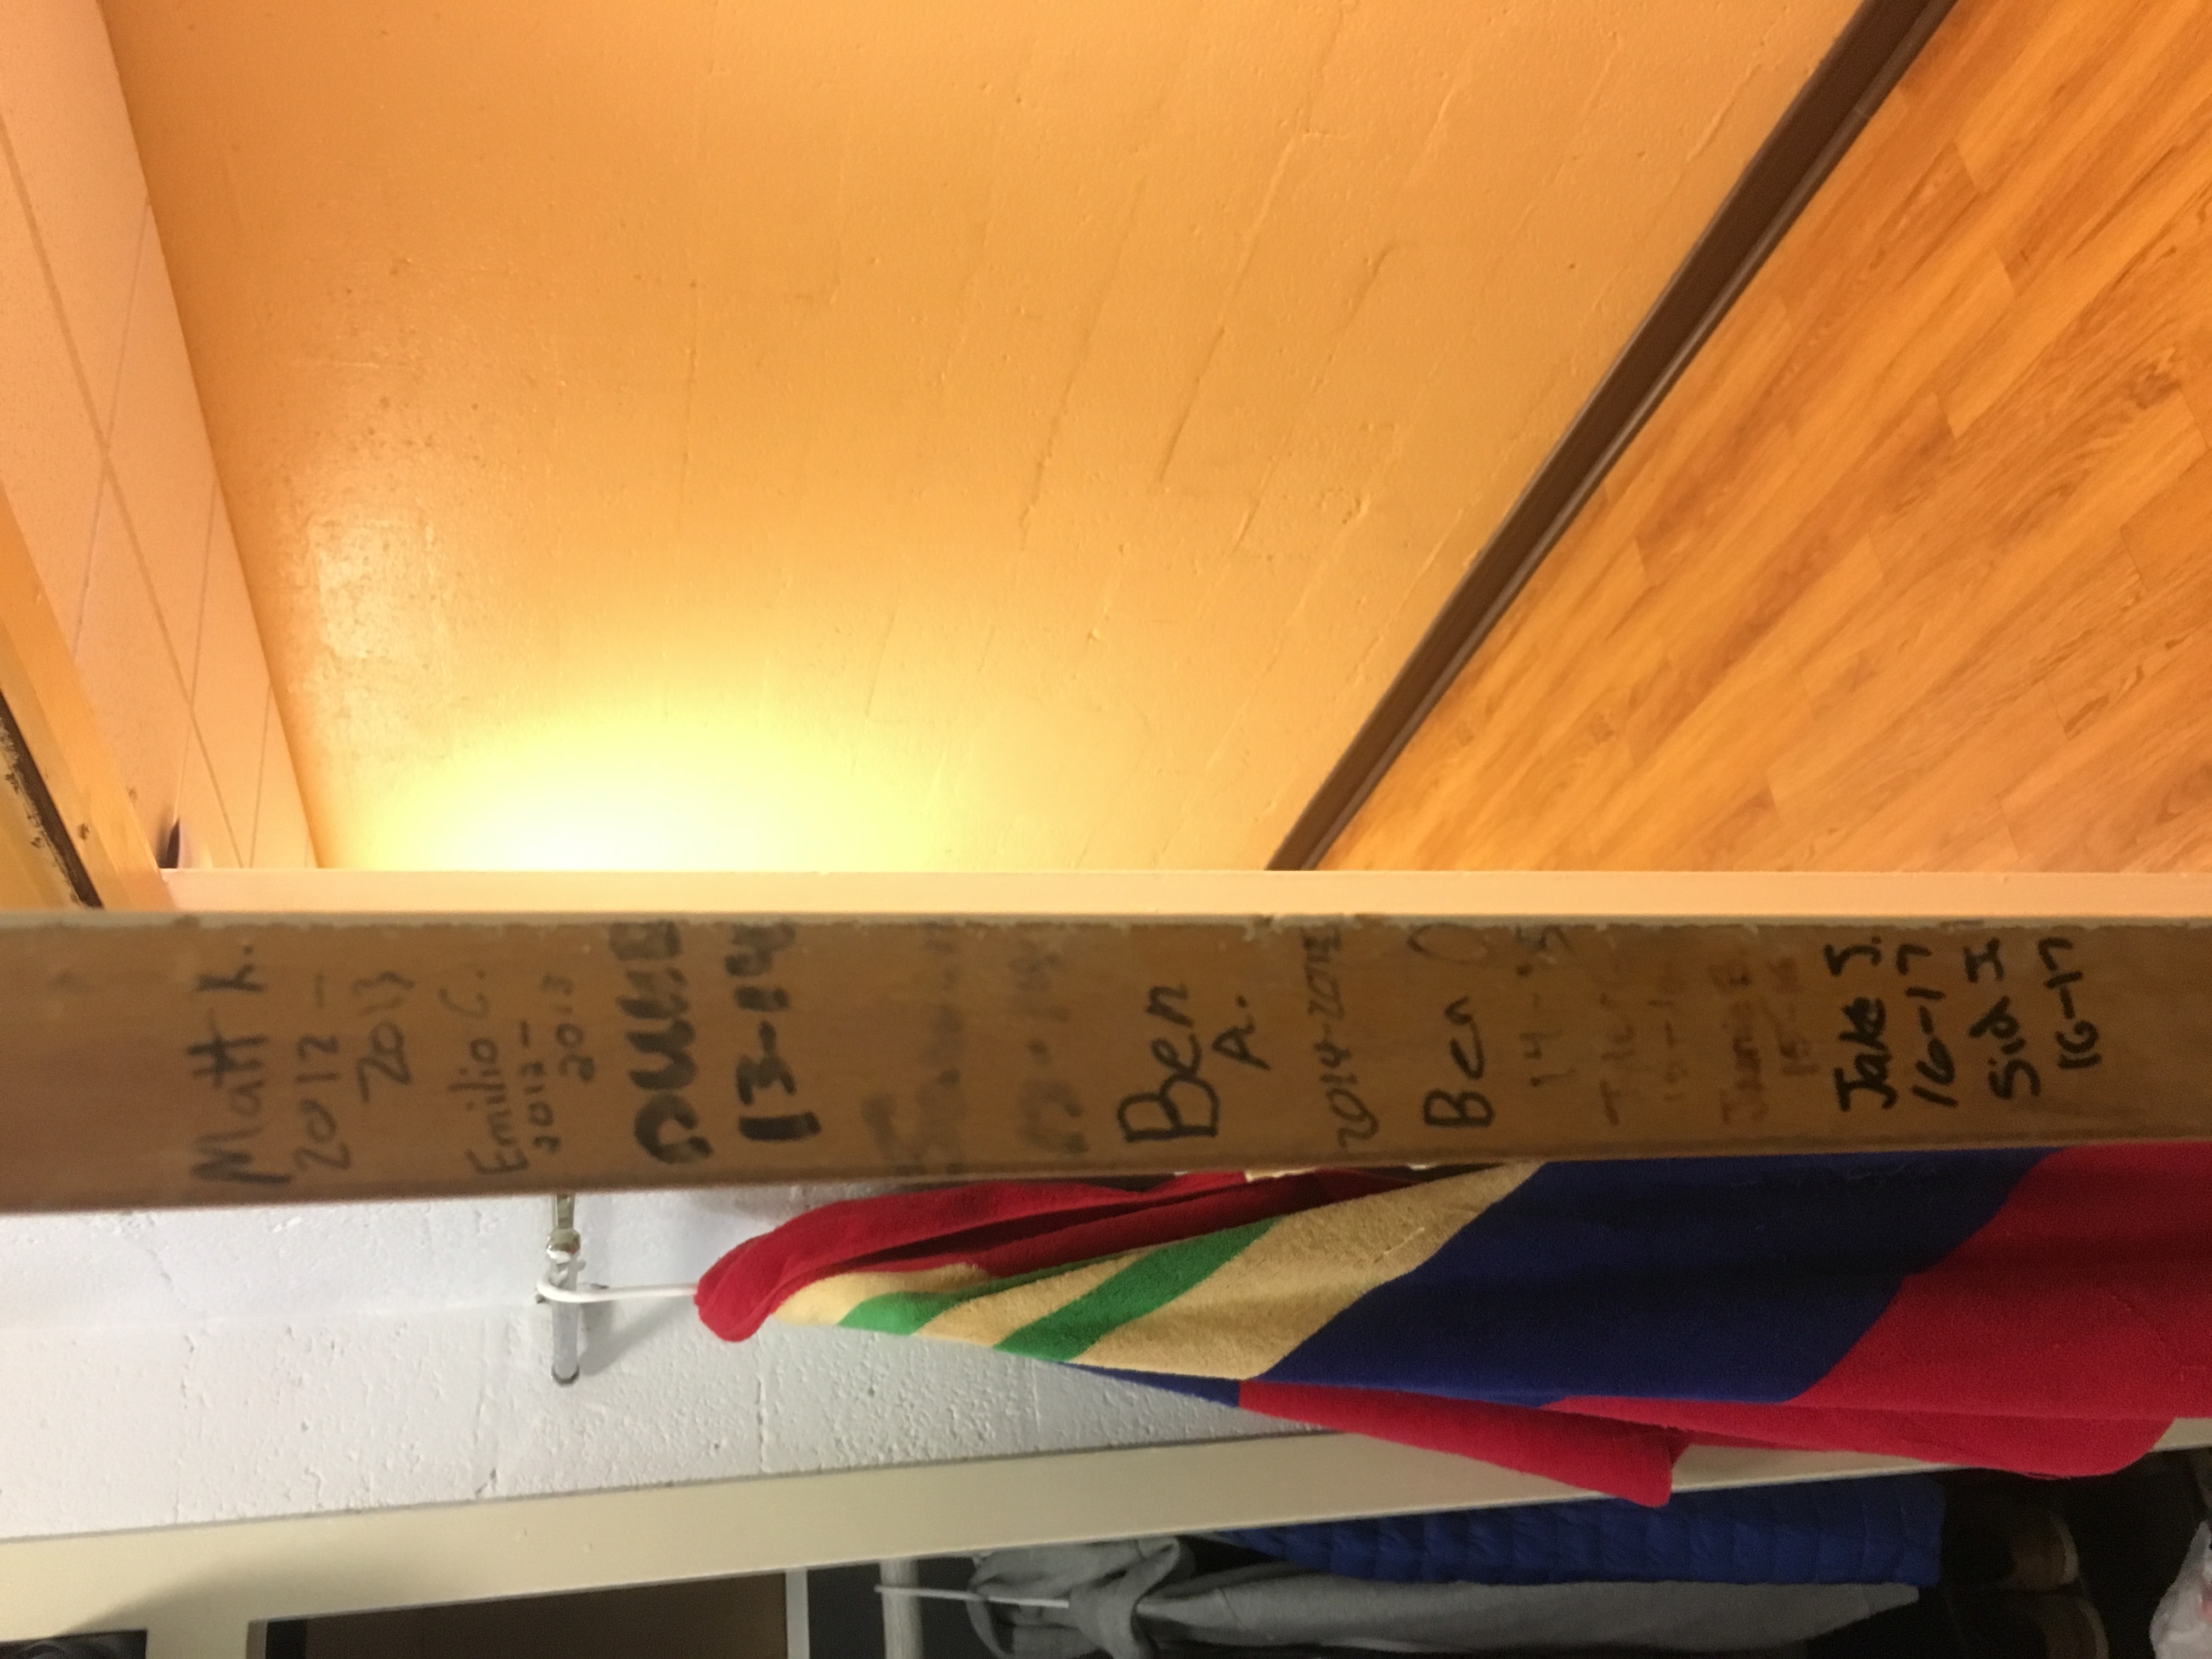 Matt K.
2012 -
2013
Emilio C.
2012 -
2013
13-14
Ben
A.
2014-2015
Ben
14-15
Jamie B.
15-16
Jake J.
16-17
Sid I.
16-17